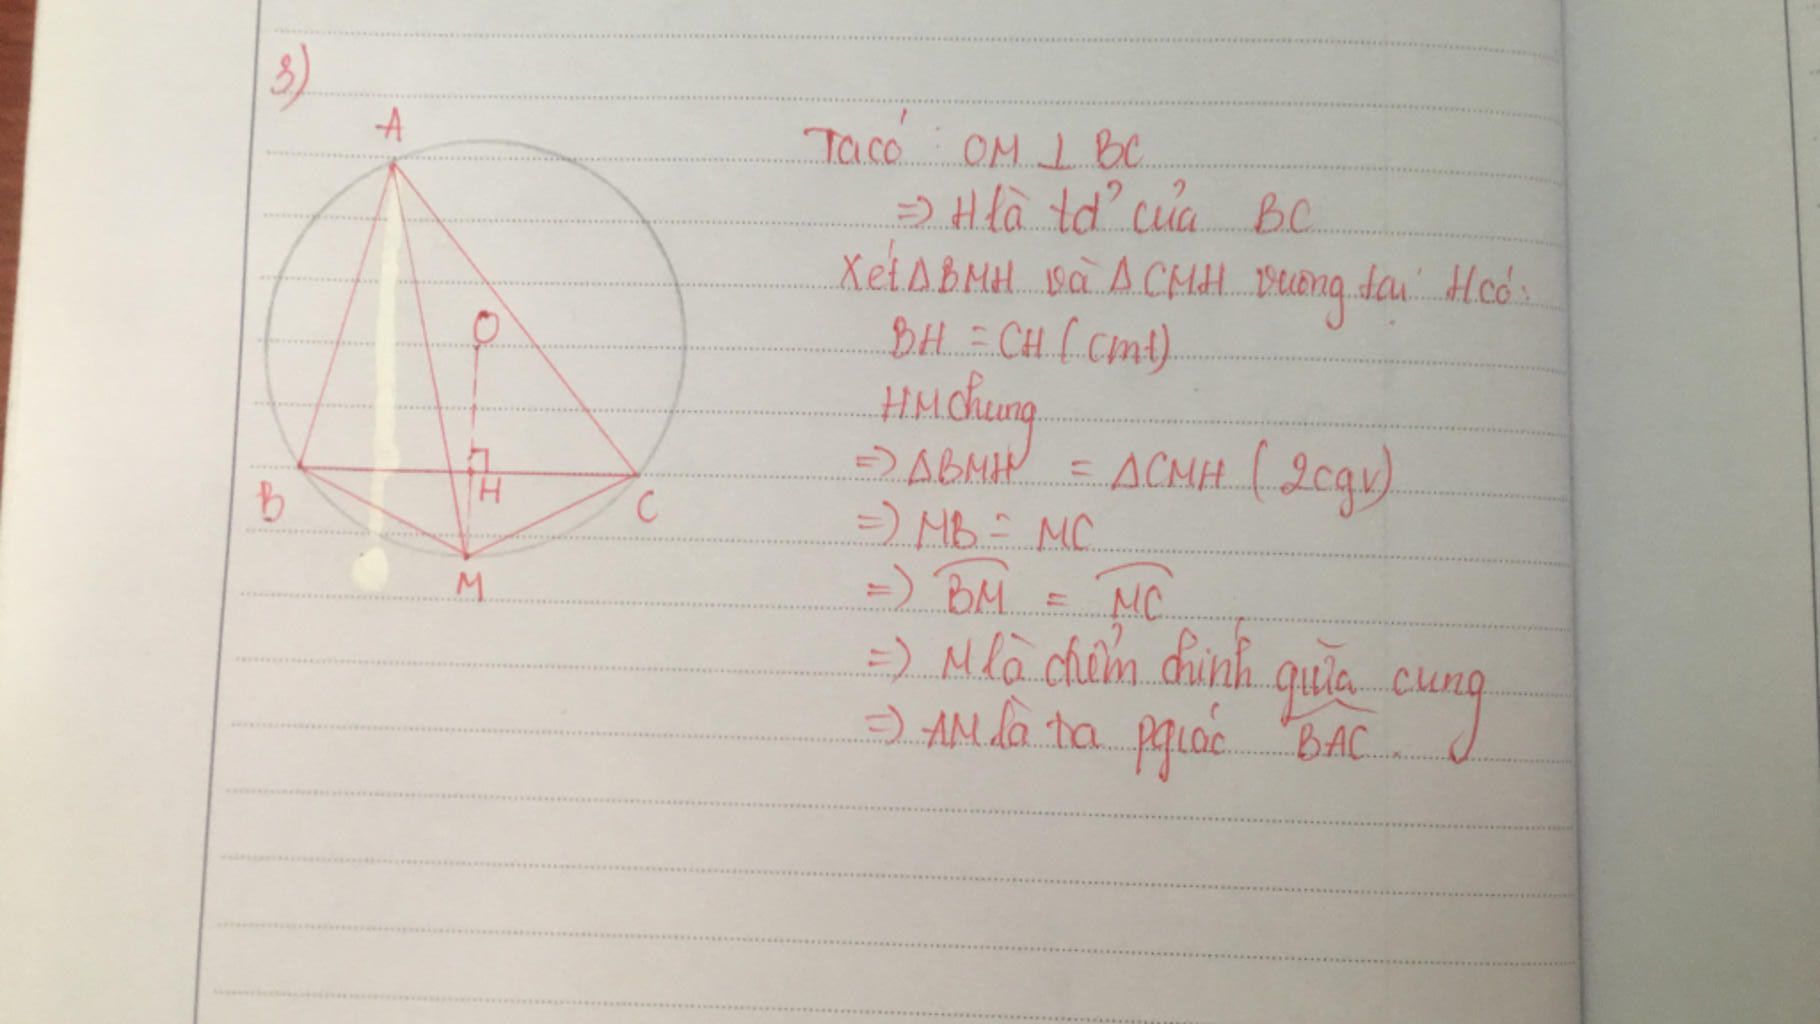 3)
A
O
B
H
C
M
Ta có: OM ⊥ BC
=> H là tđ' của BC
Xét ΔBMH và ΔCMH vuông tại H có:
BH = CH (cmt)
HM chung
=> ΔBMH = ΔCMH (2cgv)
=> MB = MC
=> \overset{\frown}{BM} = \overset{\frown}{MC}
=> M là điểm chính giữa cung
=> AM là tia pgiác \widehat{BAC}.